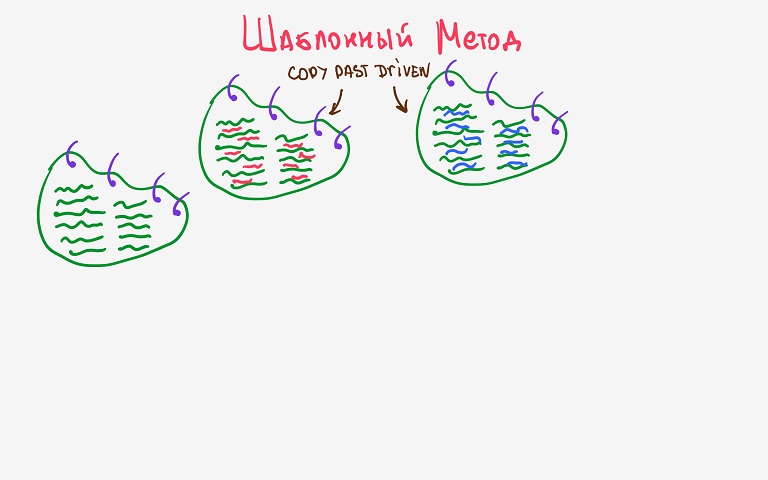 Шаблонный Метод
COPY PAST DRIVEN